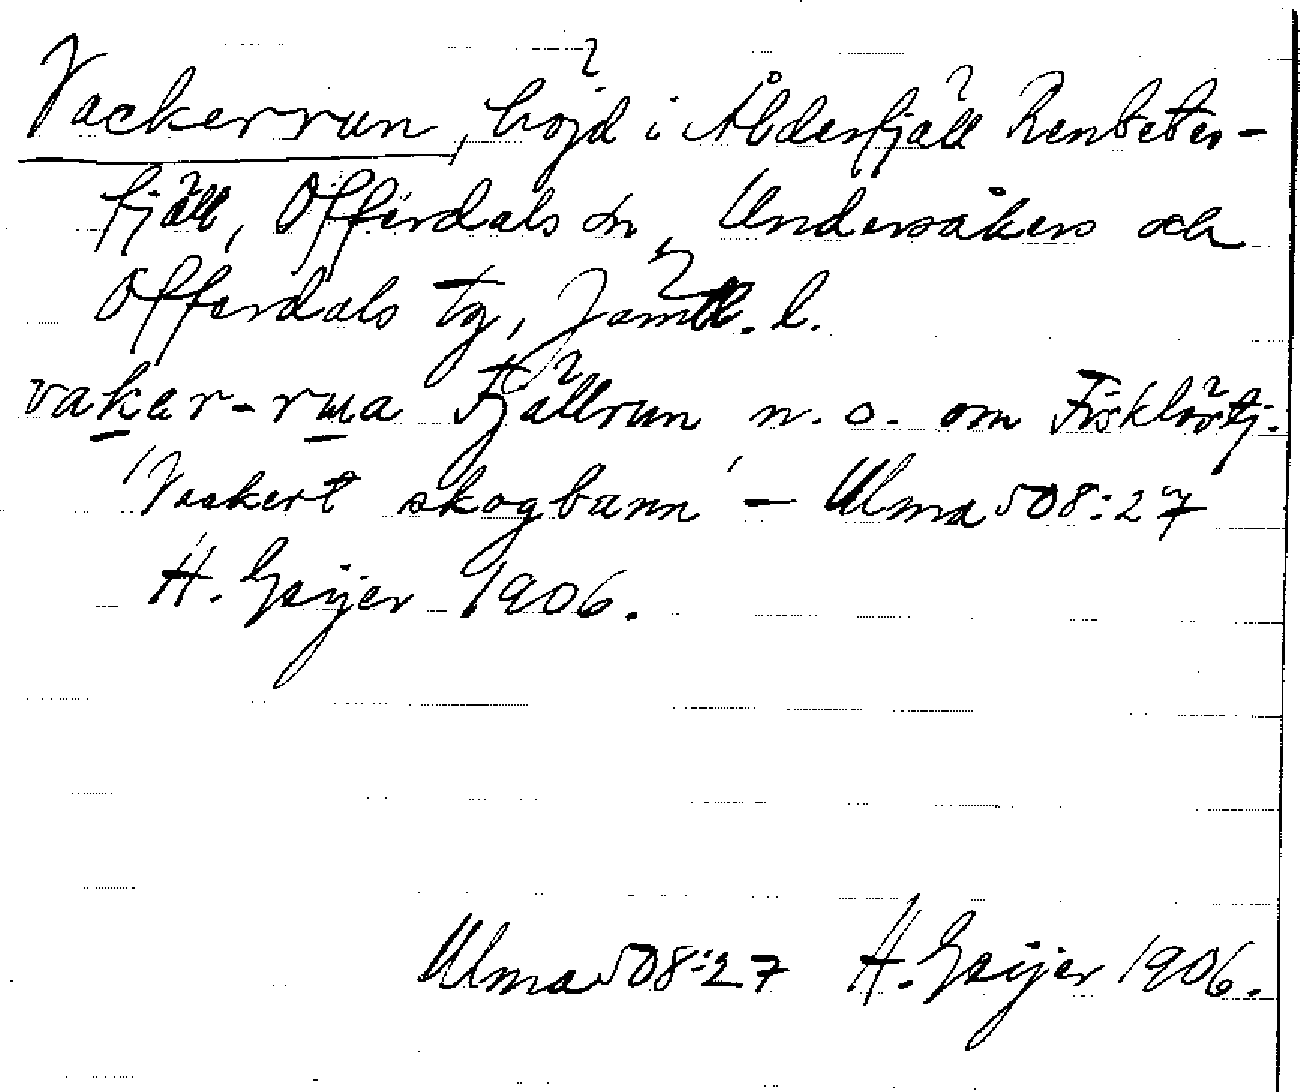 Vackerrun, höjd i Ålderfjäll Renbetes-
fjäll, Offerdals sn, Undersåkers och
Offerdals tg, Jämtl. l.
vakar-rua Fjällrun n. o. om Fisklöstj.
'Vackert skogbarn' — Ulma 508:27
H. Geijer 1906.
Ulma 508:27 H. Geijer 1906.